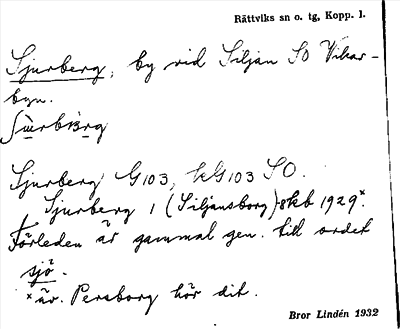 Rättviks sn o. tg, Kopp. l.
Sjurberg, by vid Siljan SO Vikar-
byn.
Sjurberg G103, kG103 SO.
Sjurberg 1 (Siljansborg) 8kb 1929x.
Förleden är gammal gen. till ordet
sjö.
x äv. Persborg hör dit.
Bror Lindén 1932